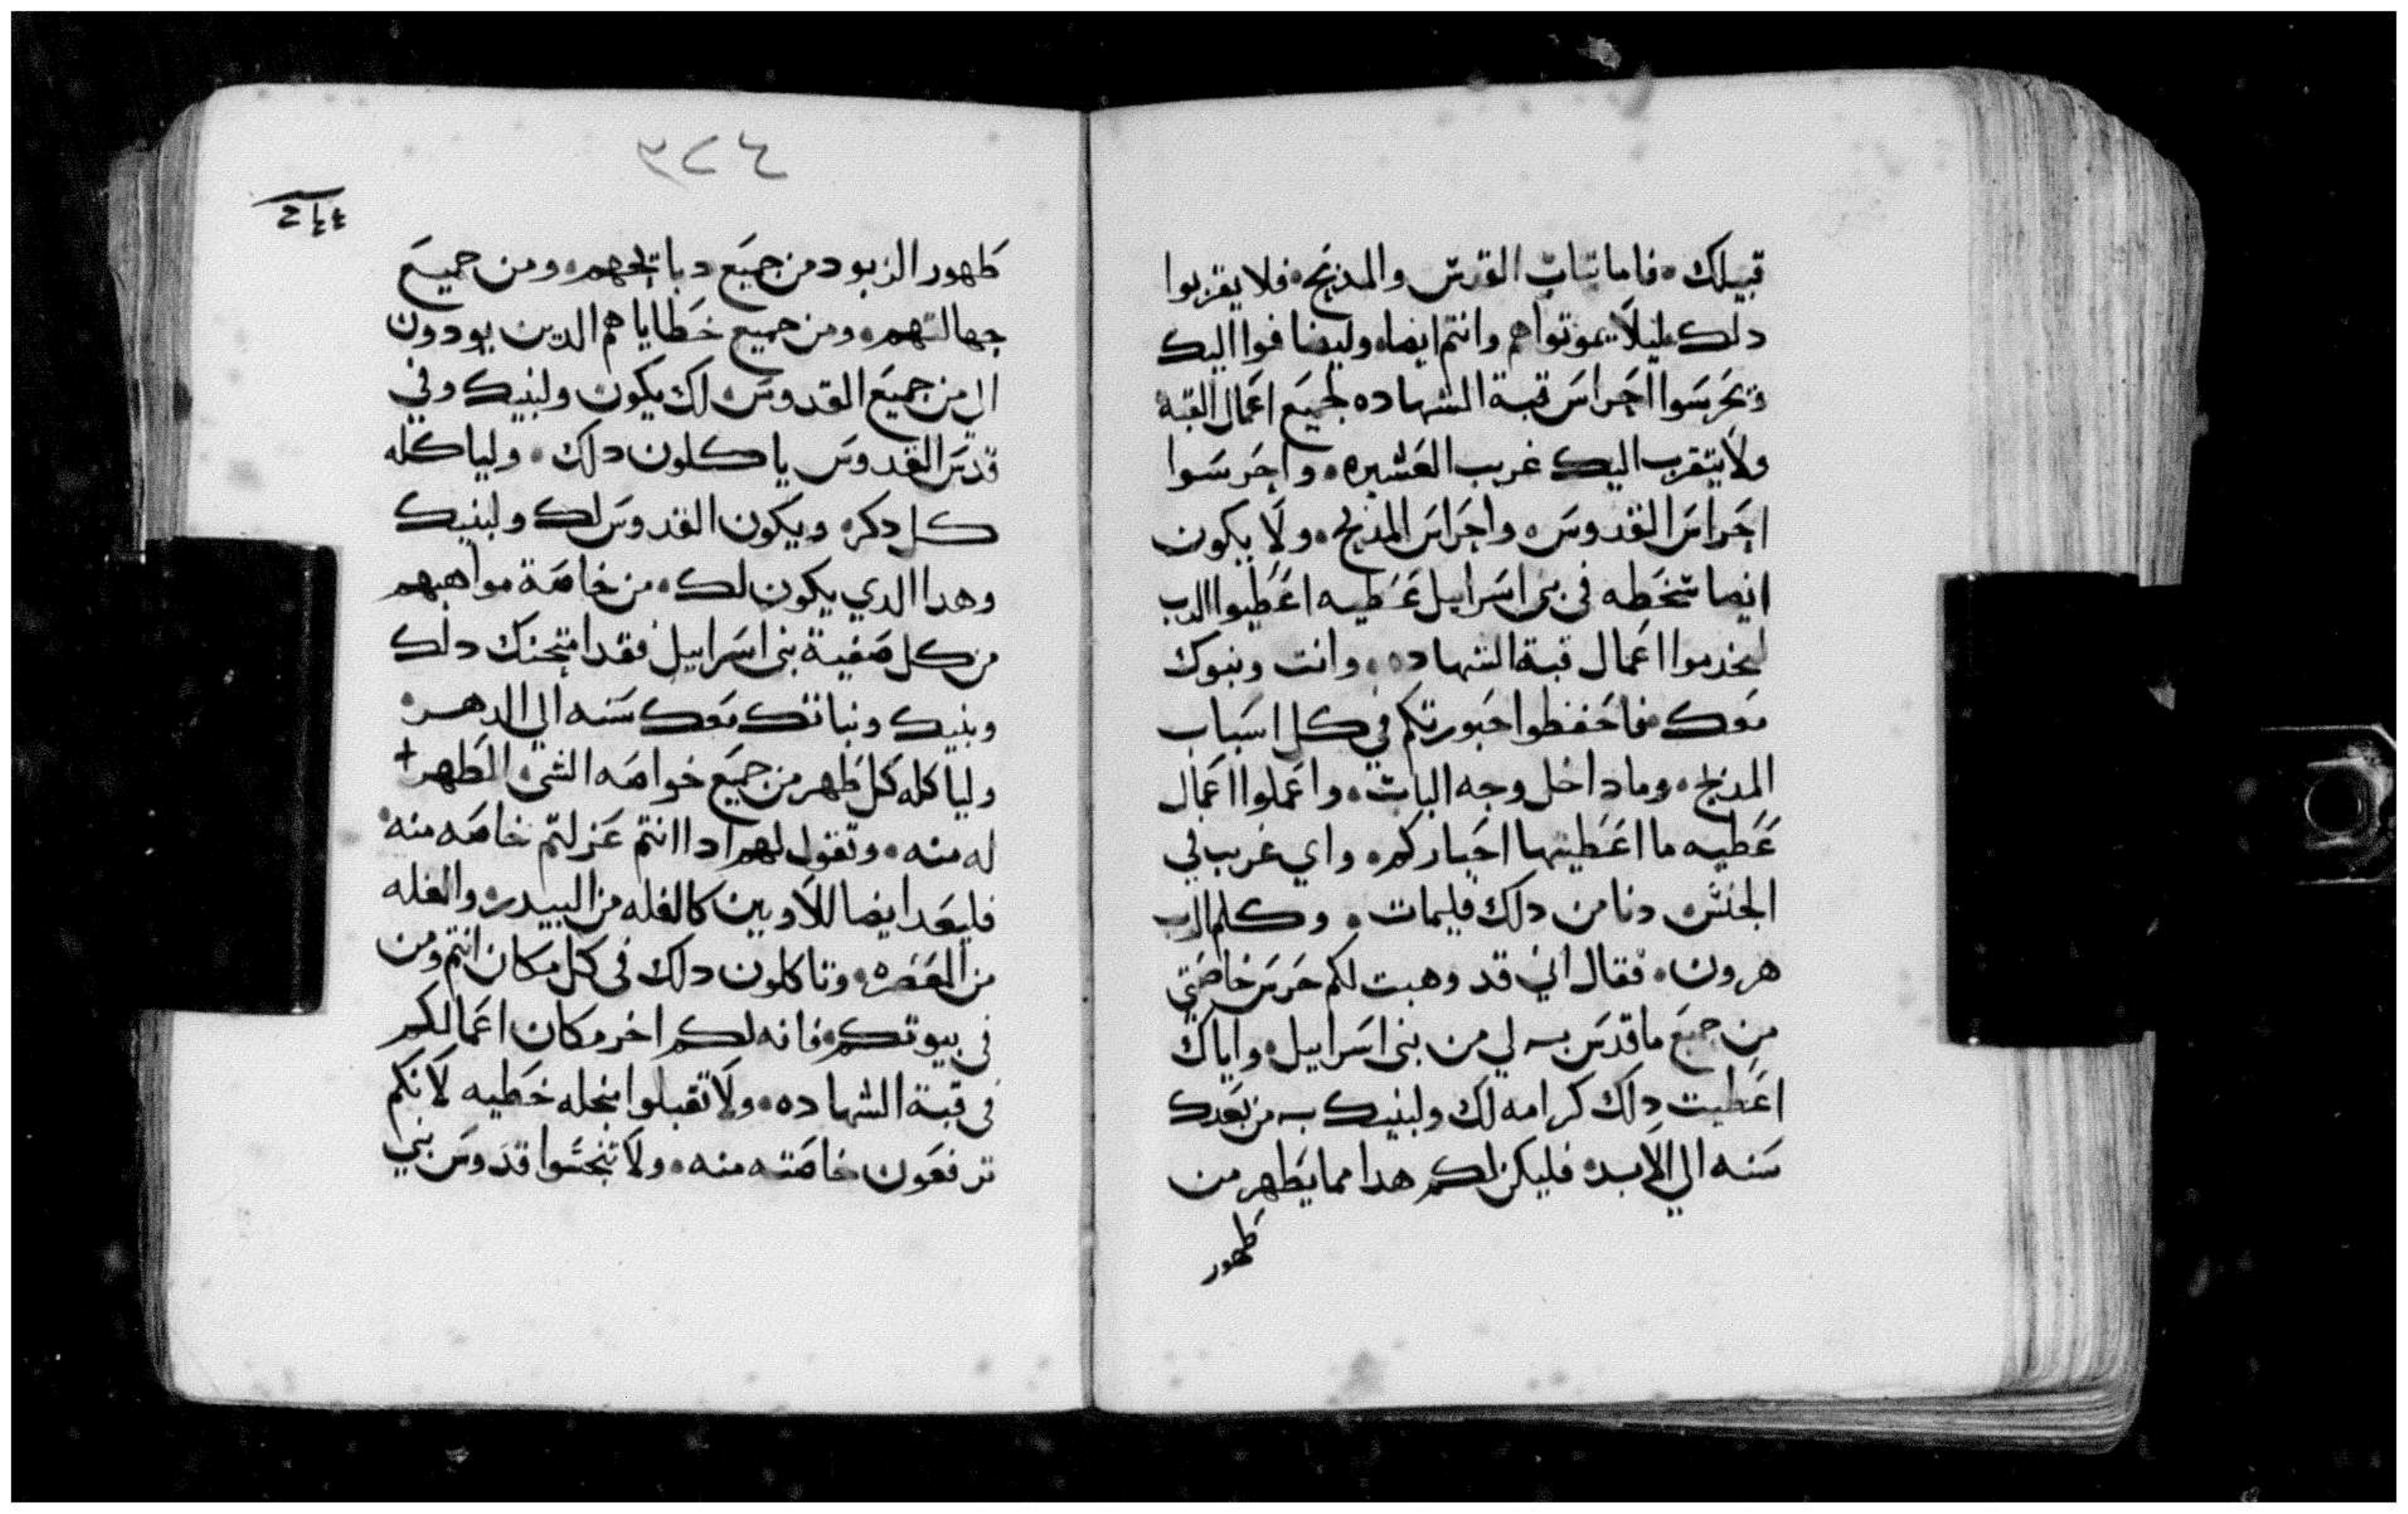 قبيلك. فاما تياب القدس والمدبح. فلا يقربوا
دلك ليلا يموتوا هم وانتم ايضا. وليضافوا اليك
ويحرسوا احراس قبة الشهاده لجميع اعمال القبه
ولا يتقرب اليك غريب العشيره. واحرسوا
احراس القدوس. واحراس المدبح. ولا يكون
ايضا سخطه في بني اسراييل عطيه اعطيوا الرب
ليخدموا اعمال قبة الشهاده. وانت وبنوك
معك فاحفظوا حبورتكم في كل اسباب
المدبح. وما داخل وجه الباب. واعملوا اعمال
عطيه ما اعطيتها احباركم. واي غريب في
الجنس دنا من دلك فليمات. وكلم الرب
هرون. فقال اني قد وهبت لكم حرس خاصتي
من جميع ما قدس به لي من بني اسراييل. واياك
اعطيت دلك كرامه لك ولبنيك به من بعدك
سنه الي الابد. فليكن لكم هدا مما يطهر من
طهور
٣٢٤
طهور الزبود من جميع دبايحهم. ومن جميع
جهالتهم. ومن جميع خطاياهم الدين يودون
الي من جميع القدوس. لك يكون ولبنيك وفي
قدس القدوس ياكلون دلك. ولياكله
كل دكر. ويكون القدوس لك ولبنيك
وهدا الدي يكون لك. من خاصة مواهبهم
من كل صفية بني اسراييل فقد امتحنك دلك
وبنيك وبناتك معك سنه الي الدهر.
ولياكله كل طهر من جميع خواصه الشي المطهر
له منه. وتقول لهم ادا انتم عزلتم خاصه منه.
فليعد ايضا للاويين كالغله من البيدر. والغله
من المعصره. وتاكلون دلك في كل مكان انتم ومن
في بيوتكم. فانه لكم اخر مكان اعمالكم
في قبة الشهاده. ولا تقبلوا منجله خطيه لانكم
ترفعون خاصته منه. ولا تنجسوا قدوس بني